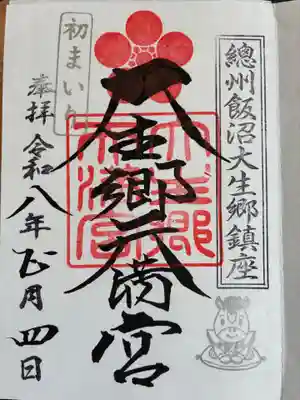 總州飯沼大生郷鎮座
大生郷天満宮
大生郷
天満宮
初まいり
奉拝 令和八年正月四日